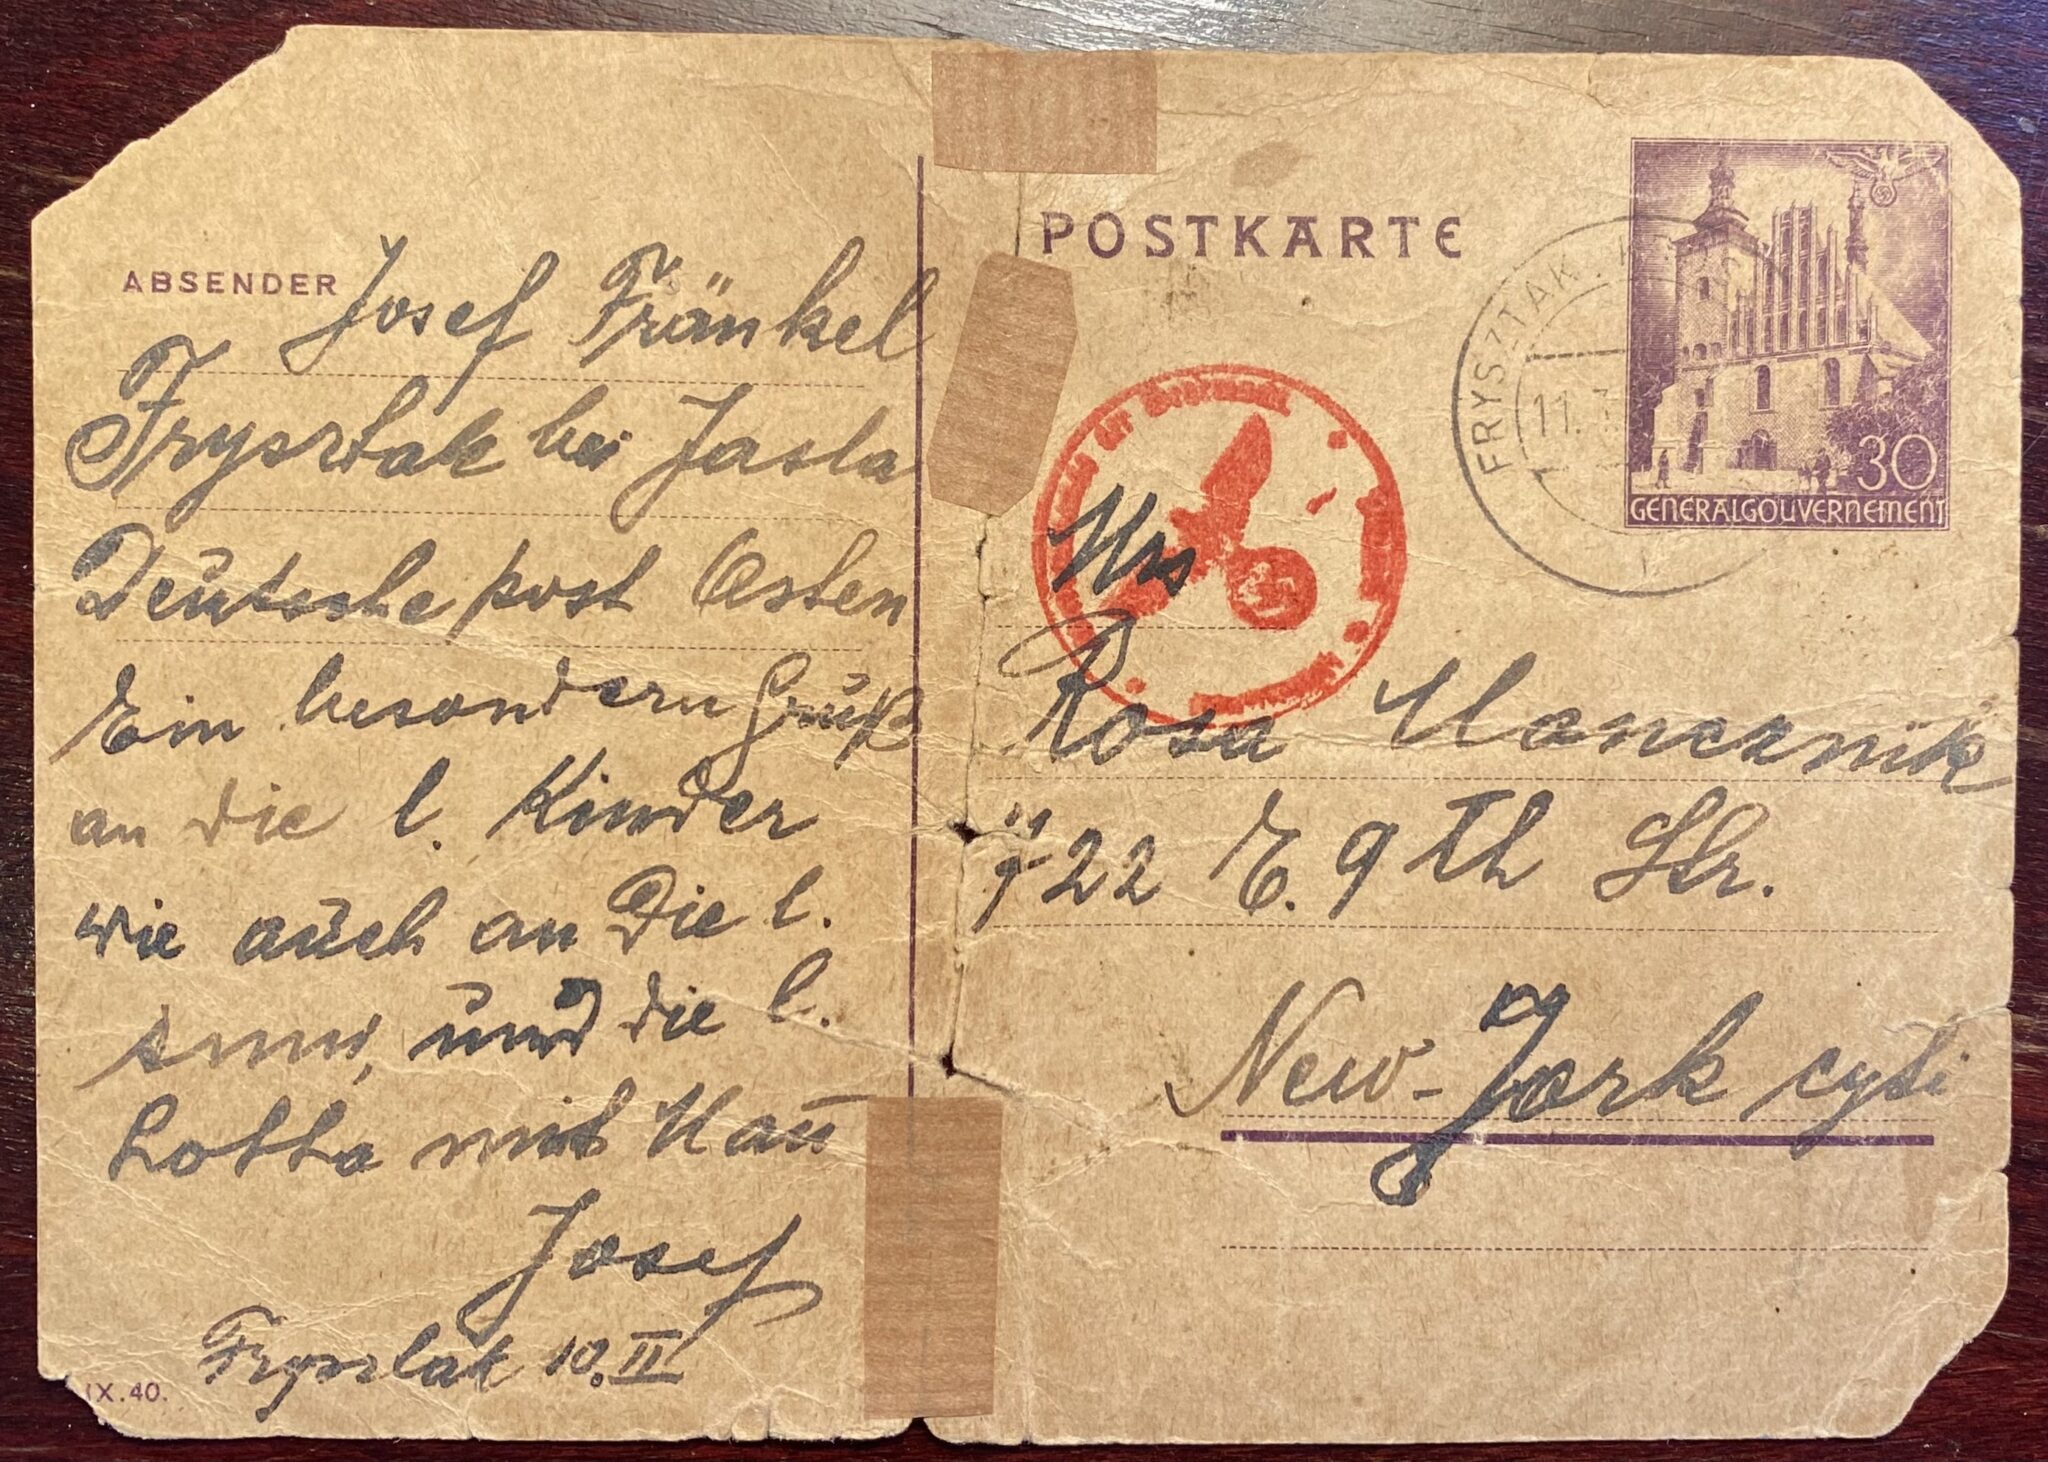 ABSENDER Josef Fränkel
Frysztak bei Jasla
Deutsche post Osten
Ein besondern Gruß
an die l. Kinder
wie auch an die l.
und die l.
Lotte mit
Josef
Frysztak 10.II
IX.40.
POSTKARTE
FRYSZTAK
11.
30
GENERALGOUVERNEMENT
Mrs
Rosa
722 E. 9 Th Str.
New-York cyti